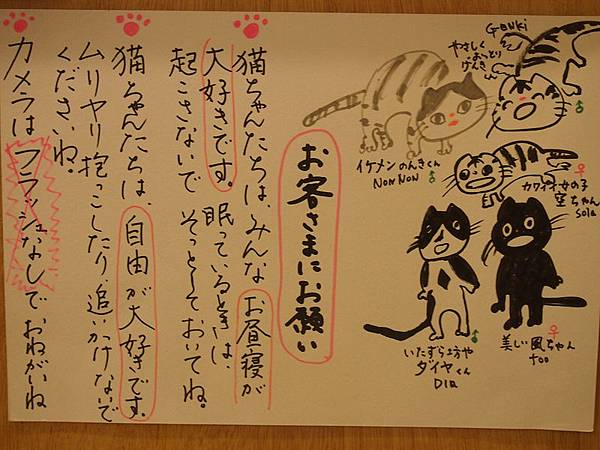 お客さまにお願い
猫ちゃんたちは、みんなお昼寝が
大好きです。眠っているときは、
起こさないでそっとしておいてね。
猫ちゃんたちは、自由が大好きです。
ムリヤリ抱っこしたり、追いかけないで
くださいね。
カメラはフラッシュなしで、おねがいね
GENKi
やさしく
おっとり
げんき
♂
イケメンのんきくん
NON NON ♂
♀
カワイイ女の子
空ちゃん
Sola
♂
いたずら坊や
ダイヤくん
DIA
♀
美しい風ちゃん
foo